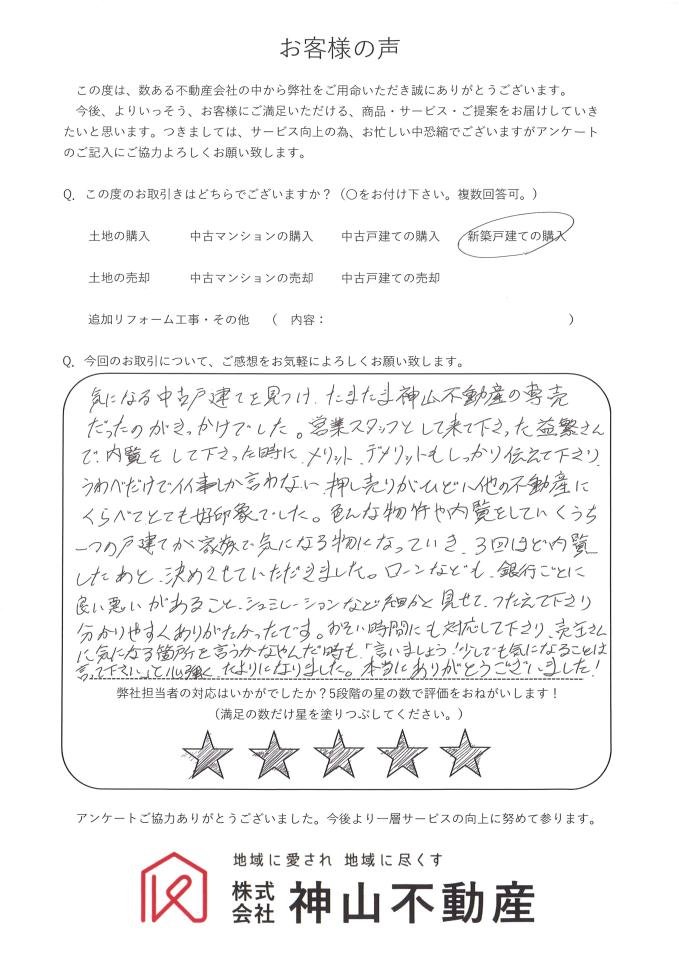 お客様の声
この度は、数ある不動産会社の中から弊社をご用命いただき誠にありがとうございます。
今後、よりいっそう、お客様にご満足いただける、商品・サービス・ご提案をお届けしていき
たいと思います。つきましては、サービス向上の為、お忙しい中恐縮でございますがアンケート
のご記入にご協力よろしくお願い致します。
Q. この度のお取引きはどちらでございますか？（〇をお付け下さい。複数回答可。）
土地の購入 中古マンションの購入 中古戸建ての購入 新築戸建ての購入
土地の売却 中古マンションの売却 中古戸建ての売却
追加リフォーム工事・その他 （ 内容： ）
Q. 今回のお取引について、ご感想をお気軽によろしくお願い致します。
気になる中古戸建てを見つけ、たまたま神山不動産の専売
だったのがきっかけでした。営業スタッフとして来て下さった益繁さん
で、内覧をして下さった時に、メリット、デメリットもしっかり伝えて下さり、
うわべだけでイイ事しか言わない、押し売りがひどい他の不動産に
くらべてとても好印象でした。色んな物件や内覧をしていくうち
一つの戸建てが家族で気になる物になっていき、3回ほど内覧
したあと、決めさせていただきました。ローンなども、銀行ごとに
良い悪いがあること、シュミレーションなど細かく見せて、つたえて下さり
分かりやすくありがたかったです。おそい時間にも対応して下さり、売主さん
に気になる箇所を言うかなやんだ時も、「言いましょう！少しでも気になることは
言って下さい」と心強く、たよりになりました。本当にありがとうございました！
弊社担当者の対応はいかがでしたか？5段階の星の数で評価をおねがいします！
（満足の数だけ星を塗りつぶしてください。）
アンケートご協力ありがとうございました。今後より一層サービスの向上に努めて参ります。
地域に愛され 地域に尽くす
株式会社 神山不動産